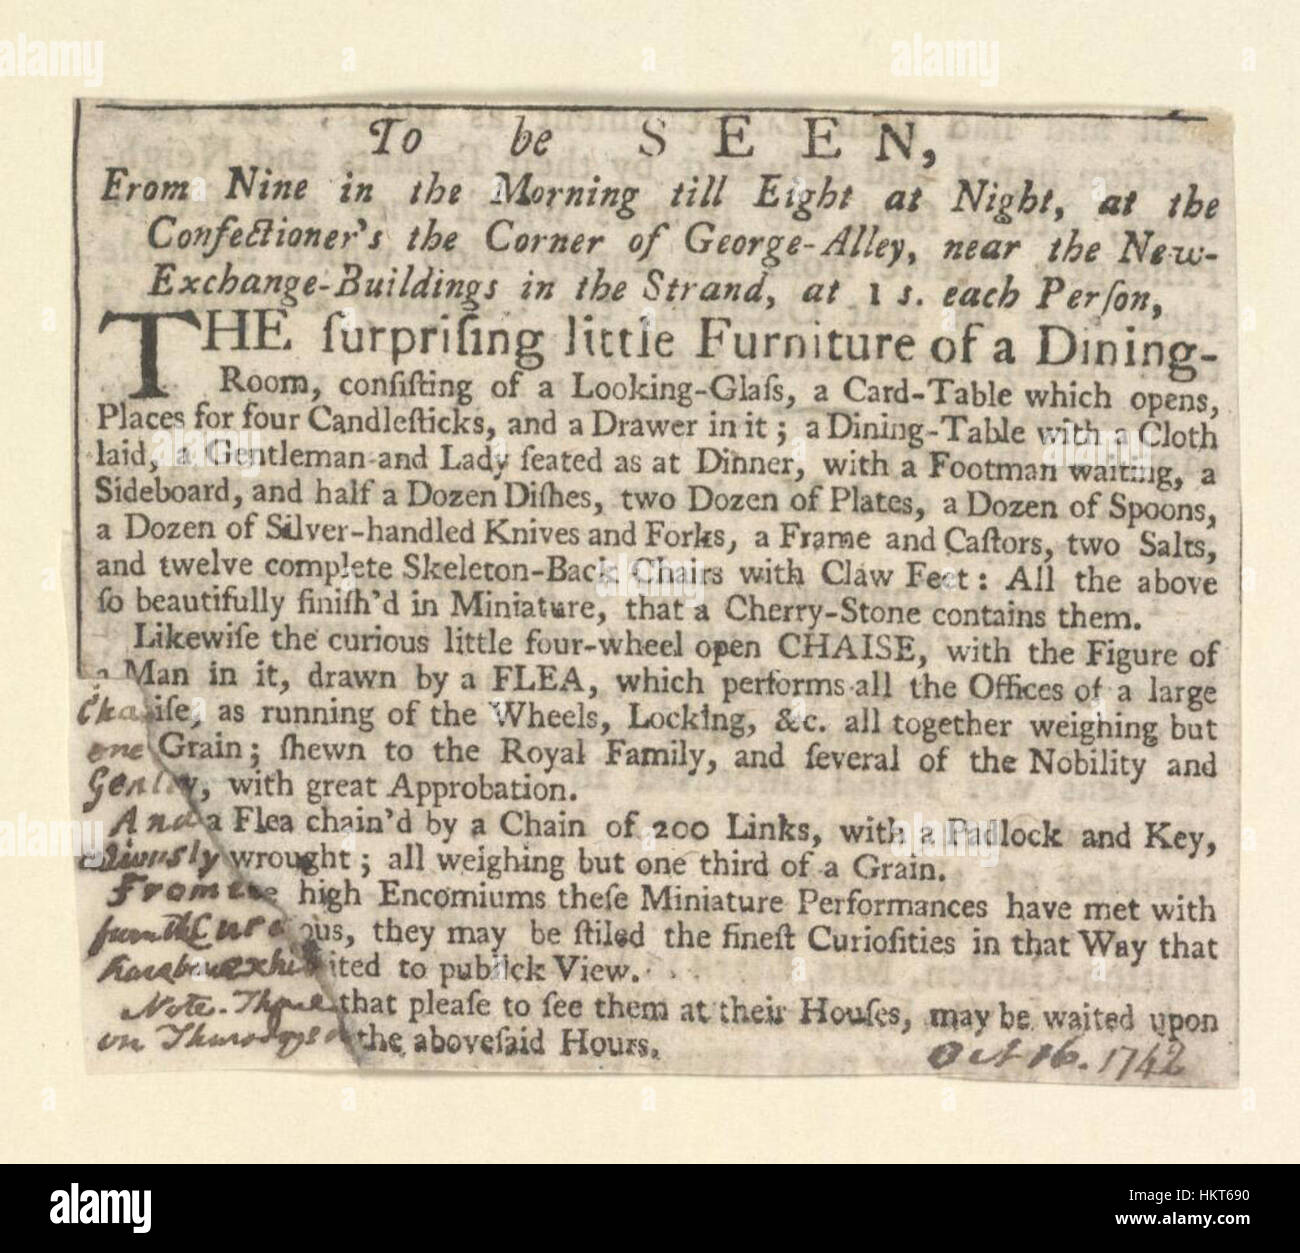 To be SEEN,
From Nine in the Morning till Eight at Night, at the
Confectioner's the Corner of George-Alley, near the New-
Exchange-Buildings in the Strand, at 1 s. each Perſon,
THE ſurpriſing little Furniture of a Dining-
Room, conſiſting of a Looking-Glaſs, a Card-Table which opens,
Places for four Candleſticks, and a Drawer in it; a Dining-Table with a Cloth
laid, a Gentleman and Lady ſeated as at Dinner, with a Footman waiting, a
Sideboard, and half a Dozen Diſhes, two Dozen of Plates, a Dozen of Spoons,
a Dozen of Silver-handled Knives and Forks, a Frame and Caſtors, two Salts,
and twelve complete Skeleton-Back Chairs with Claw Feet: All the above
ſo beautifully finiſh'd in Miniature, that a Cherry-Stone contains them.
Likewiſe the curious little four-wheel open CHAISE, with the Figure of
a Man in it, drawn by a FLEA, which performs all the Offices of a large
Chaiſe, as running of the Wheels, Locking, &c. all together weighing but
one Grain; ſhewn to the Royal Family, and ſeveral of the Nobility and
Gentry, with great Approbation.
And a Flea chain'd by a Chain of 200 Links, with a Padlock and Key,
wrought; all weighing but one third of a Grain.
From the high Encomiums theſe Miniature Performances have met with
from the Curious, they may be ſtiled the fineſt Curioſities in that Way that
exhibited to publick View.
Note. Thoſe that pleaſe to ſee them at their Houſes, may be waited upon
on Thursdays the aboveſaid Hours.
Oct 16. 1742
alamy
a
www.alamy.com
Image ID: HKT690